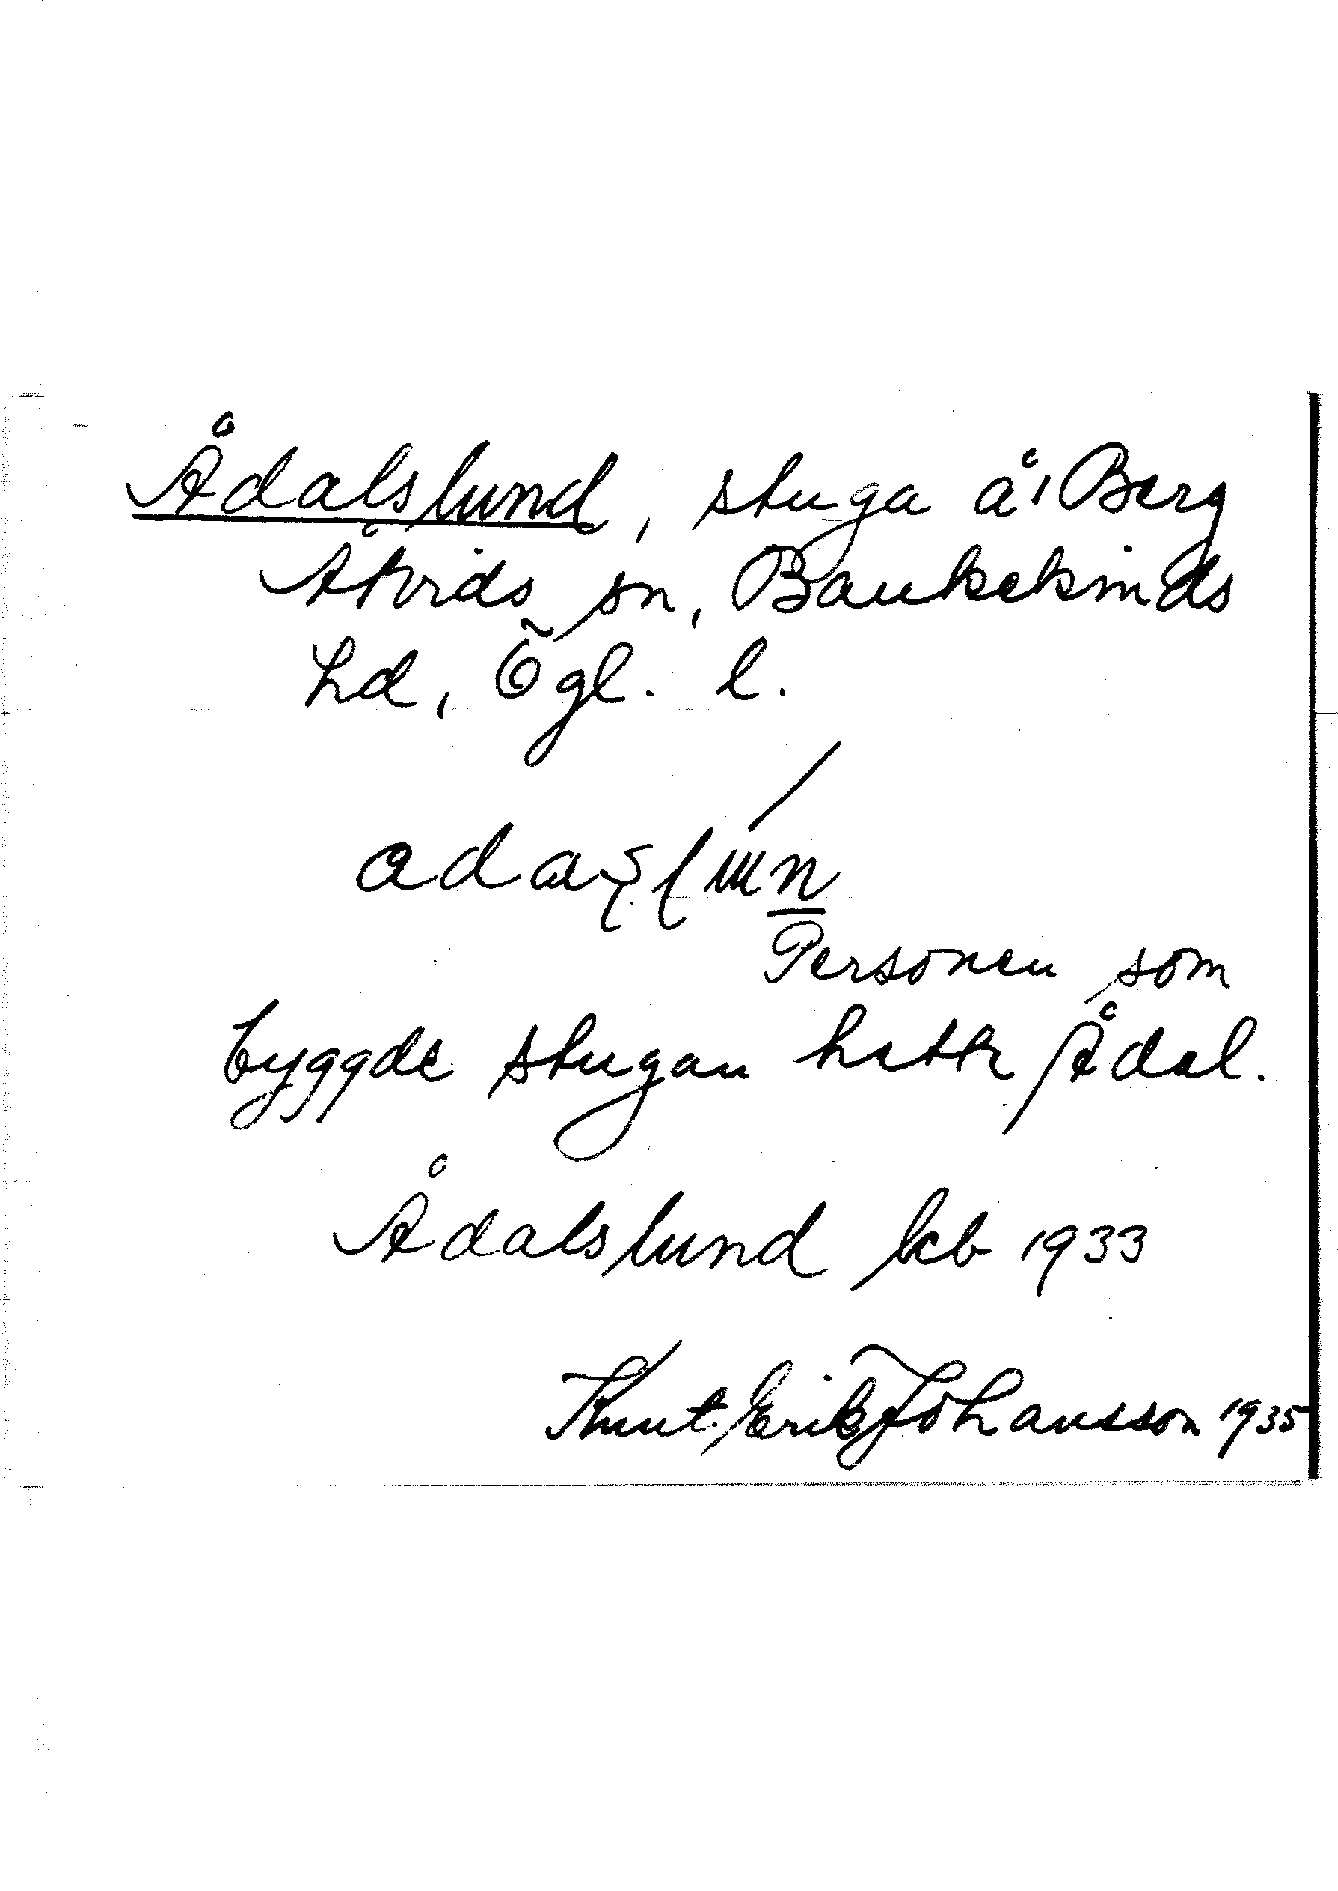 Ådalslund, stuga å, Berg
Åtvids sn, Bankekinds
hd, Ögl. l.
Personen som
byggde stugan hette Ådal.
Ådalslund kcb 1933
Knut Erik Johansson 1935